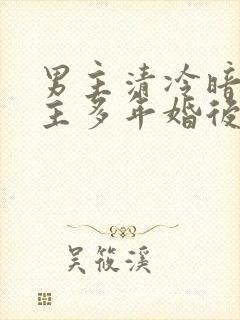 男主清冷暗
主多年婚後
吴筱溪